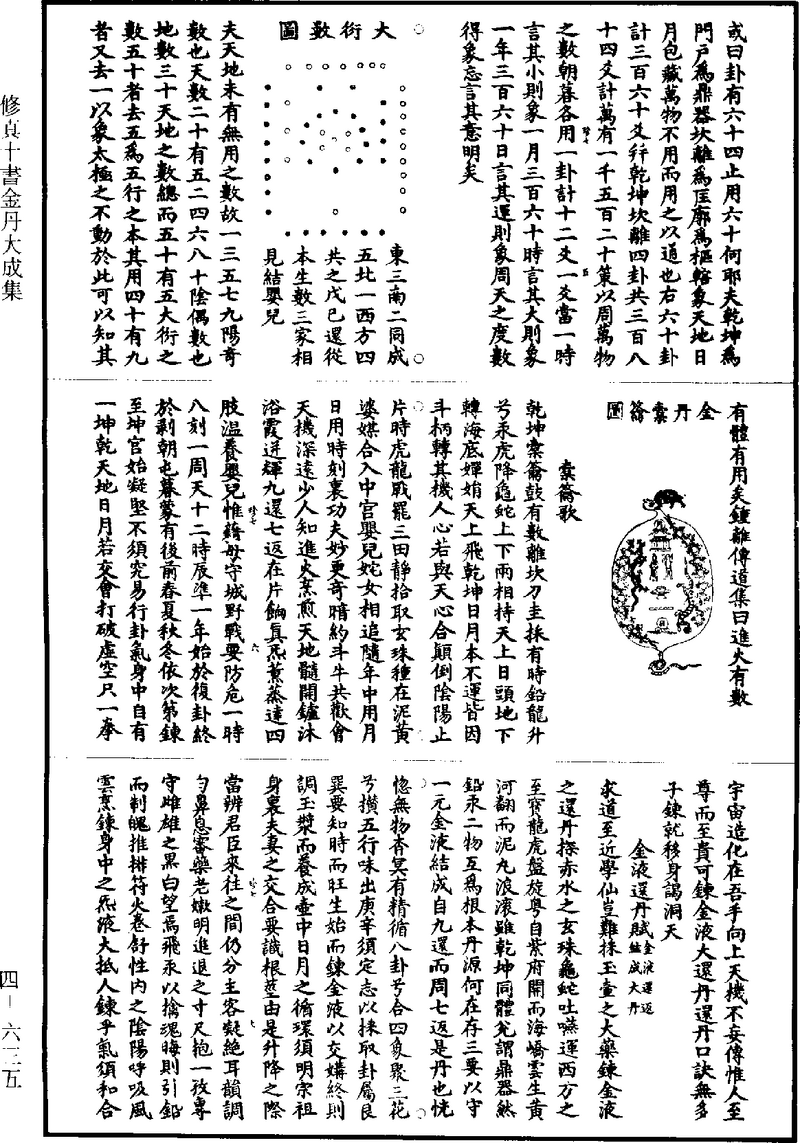 修真十書金丹大成集
或曰卦有六十四止用六十何耶夫乾坤為
門戶為鼎器坎離為匡廓為樞轄象天地日
月包藏萬物不用而用之以道也右六十卦
計三百六十爻幷乾坤坎離四卦共三百八
十四爻計萬有一千五百二十策以周萬物
之數朝暮各用一卦計十二爻一爻當一時
言其小則象一月三百六十時言其大則象
一年三百六十日言其運則象周天之度數
得象忘言其意明矣
大衍數圖
東三南二同成
五北一西方四
共之戊己還從
本生數三家相
見結嬰兒
夫天地未有無用之數故一三五七九陽奇
數也天數二十有五二四六八十陰偶數也
地數三十天地之數總而五十有五大衍之
數五十者去五為五行之本其用四十有九
者又去一以象太極之不動於此可以知其
有體有用矣鍾離傳道集曰進火有數
金丹橐籥圖
橐籥歌
乾坤橐籥鼓有數離坎刀圭採有時鉛龍升
兮汞虎降龜蛇上下兩相持天上日頭地下
轉海底嬋娟天上飛乾坤日月本不運皆因
斗柄轉其機人心若與天心合顛倒陰陽止
片時虎龍戰罷三田靜拾取玄珠種在泥黃
婆媒合入中宮嬰兒姹女相追隨年中用月
日用時刻裏功夫妙更奇暗約斗牛共歡會
天機深遠少人知進火烹煎天地髓開鑪沐
浴霞迸輝九還七返在片餉真炁薰蒸達四
肢溫養嬰兒惟藉母守城野戰要防危一時
八刻一周天十二時辰準一年始於復卦終
於剥朝屯暮蒙有後前春夏秋冬依次第鍊
至坤宮始凝堅不須究易行卦氣身中自有
一坤乾天地日月若交會打破虛空只一拳
宇宙造化在吾手向上天機不妄傳惟人至
尊而至貴可鍊金液大還丹還丹口訣無多
子鍊就移身謁洞天
金液還丹賦金液還返結成大丹
求道至近學仙豈難採玉壺之大藥鍊金液
之還丹探赤水之玄珠龜蛇吐嚥運西方之
至寶龍虎盤旋粤自紫府開而海嶠雲生黃
河翻而泥九浪滾雖乾坤同體兊謂鼎器然
鉛汞二物互為根本丹源何在存三要以守
一元金液結成自九還而周七返是丹也恍
惚無物杳冥有精循八卦兮合四象聚三花
兮攢五行味出庚辛須定志以採取卦屬艮
巽要知時而旺生始而鍊金液以交媾終則
調玉漿而養成壺中日月之循環須明宗祖
身裏夫妻之交合要識根莖由是升降之際
當辨君臣來往之間仍分主客凝絕耳韻調
勻鼻息審藥老嫩明進退之寸尺抱一孜專
守雌雄之黑白望焉飛汞以擒魂晦則引鉛
而制魄推排符火卷舒性內之陰陽呼吸風
雲烹鍊身中之炁液大抵人鍊乎氣須和合
四－六三五